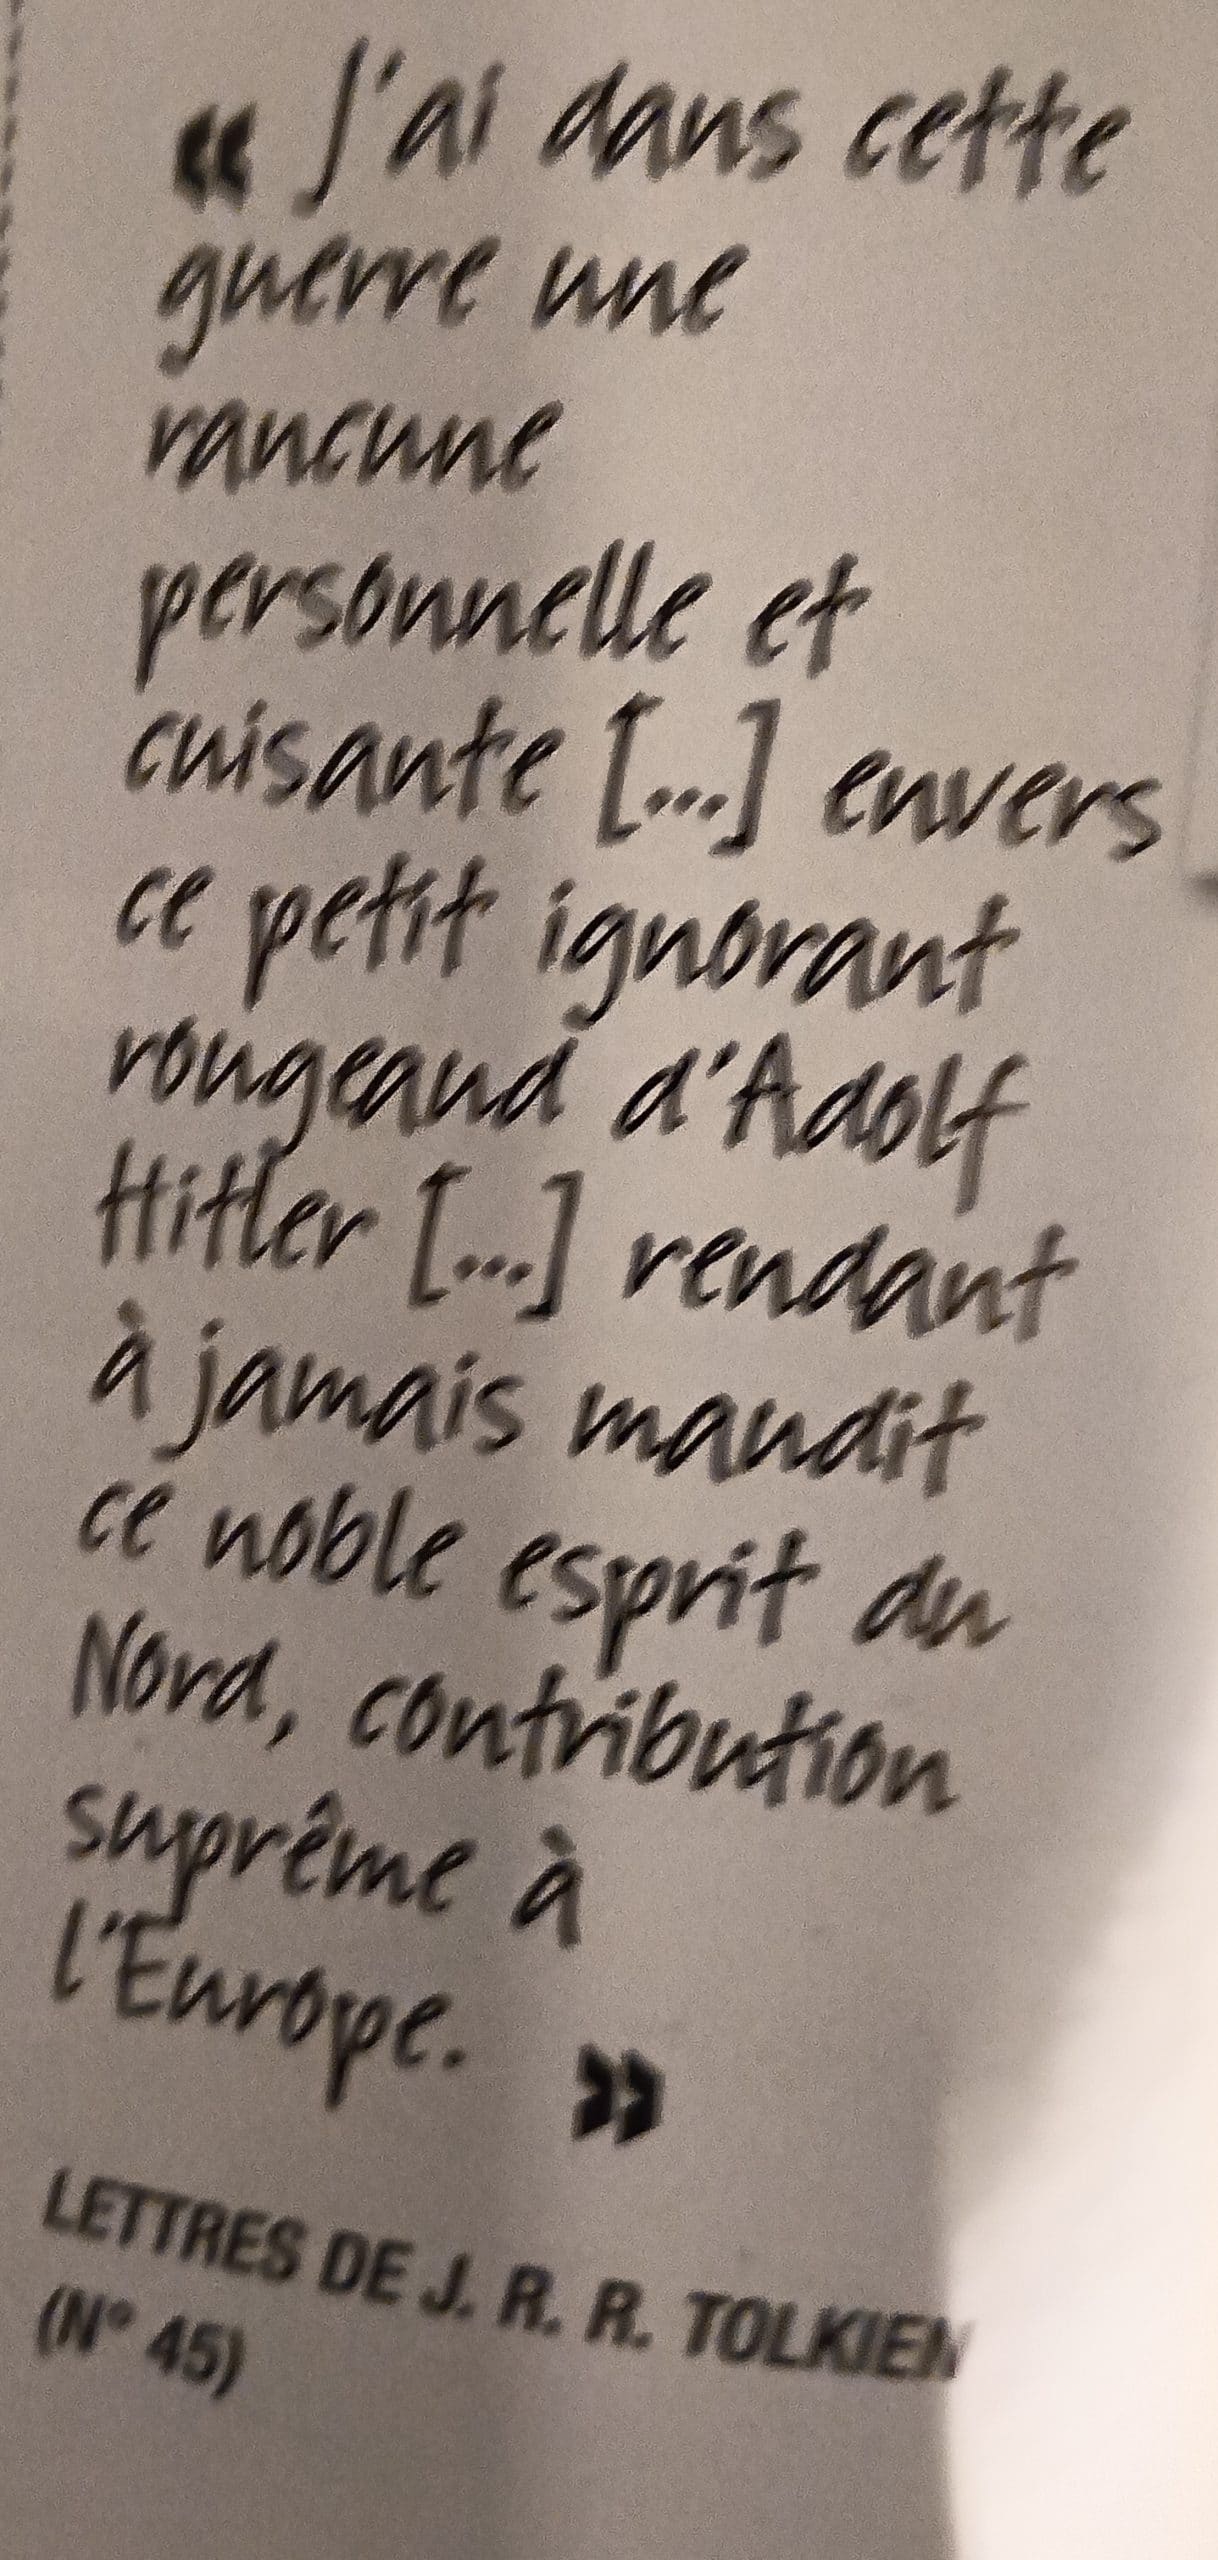 « J'ai dans cette
guerre une
rancune
personnelle et
cuisante [...] envers
ce petit ignorant
rougeaud d'Adolf
Hitler [...] rendant
à jamais maudit
ce noble esprit du
Nord, contribution
suprême à
l'Europe. »
LETTRES DE J. R. R. TOLKIEN
(N° 45)